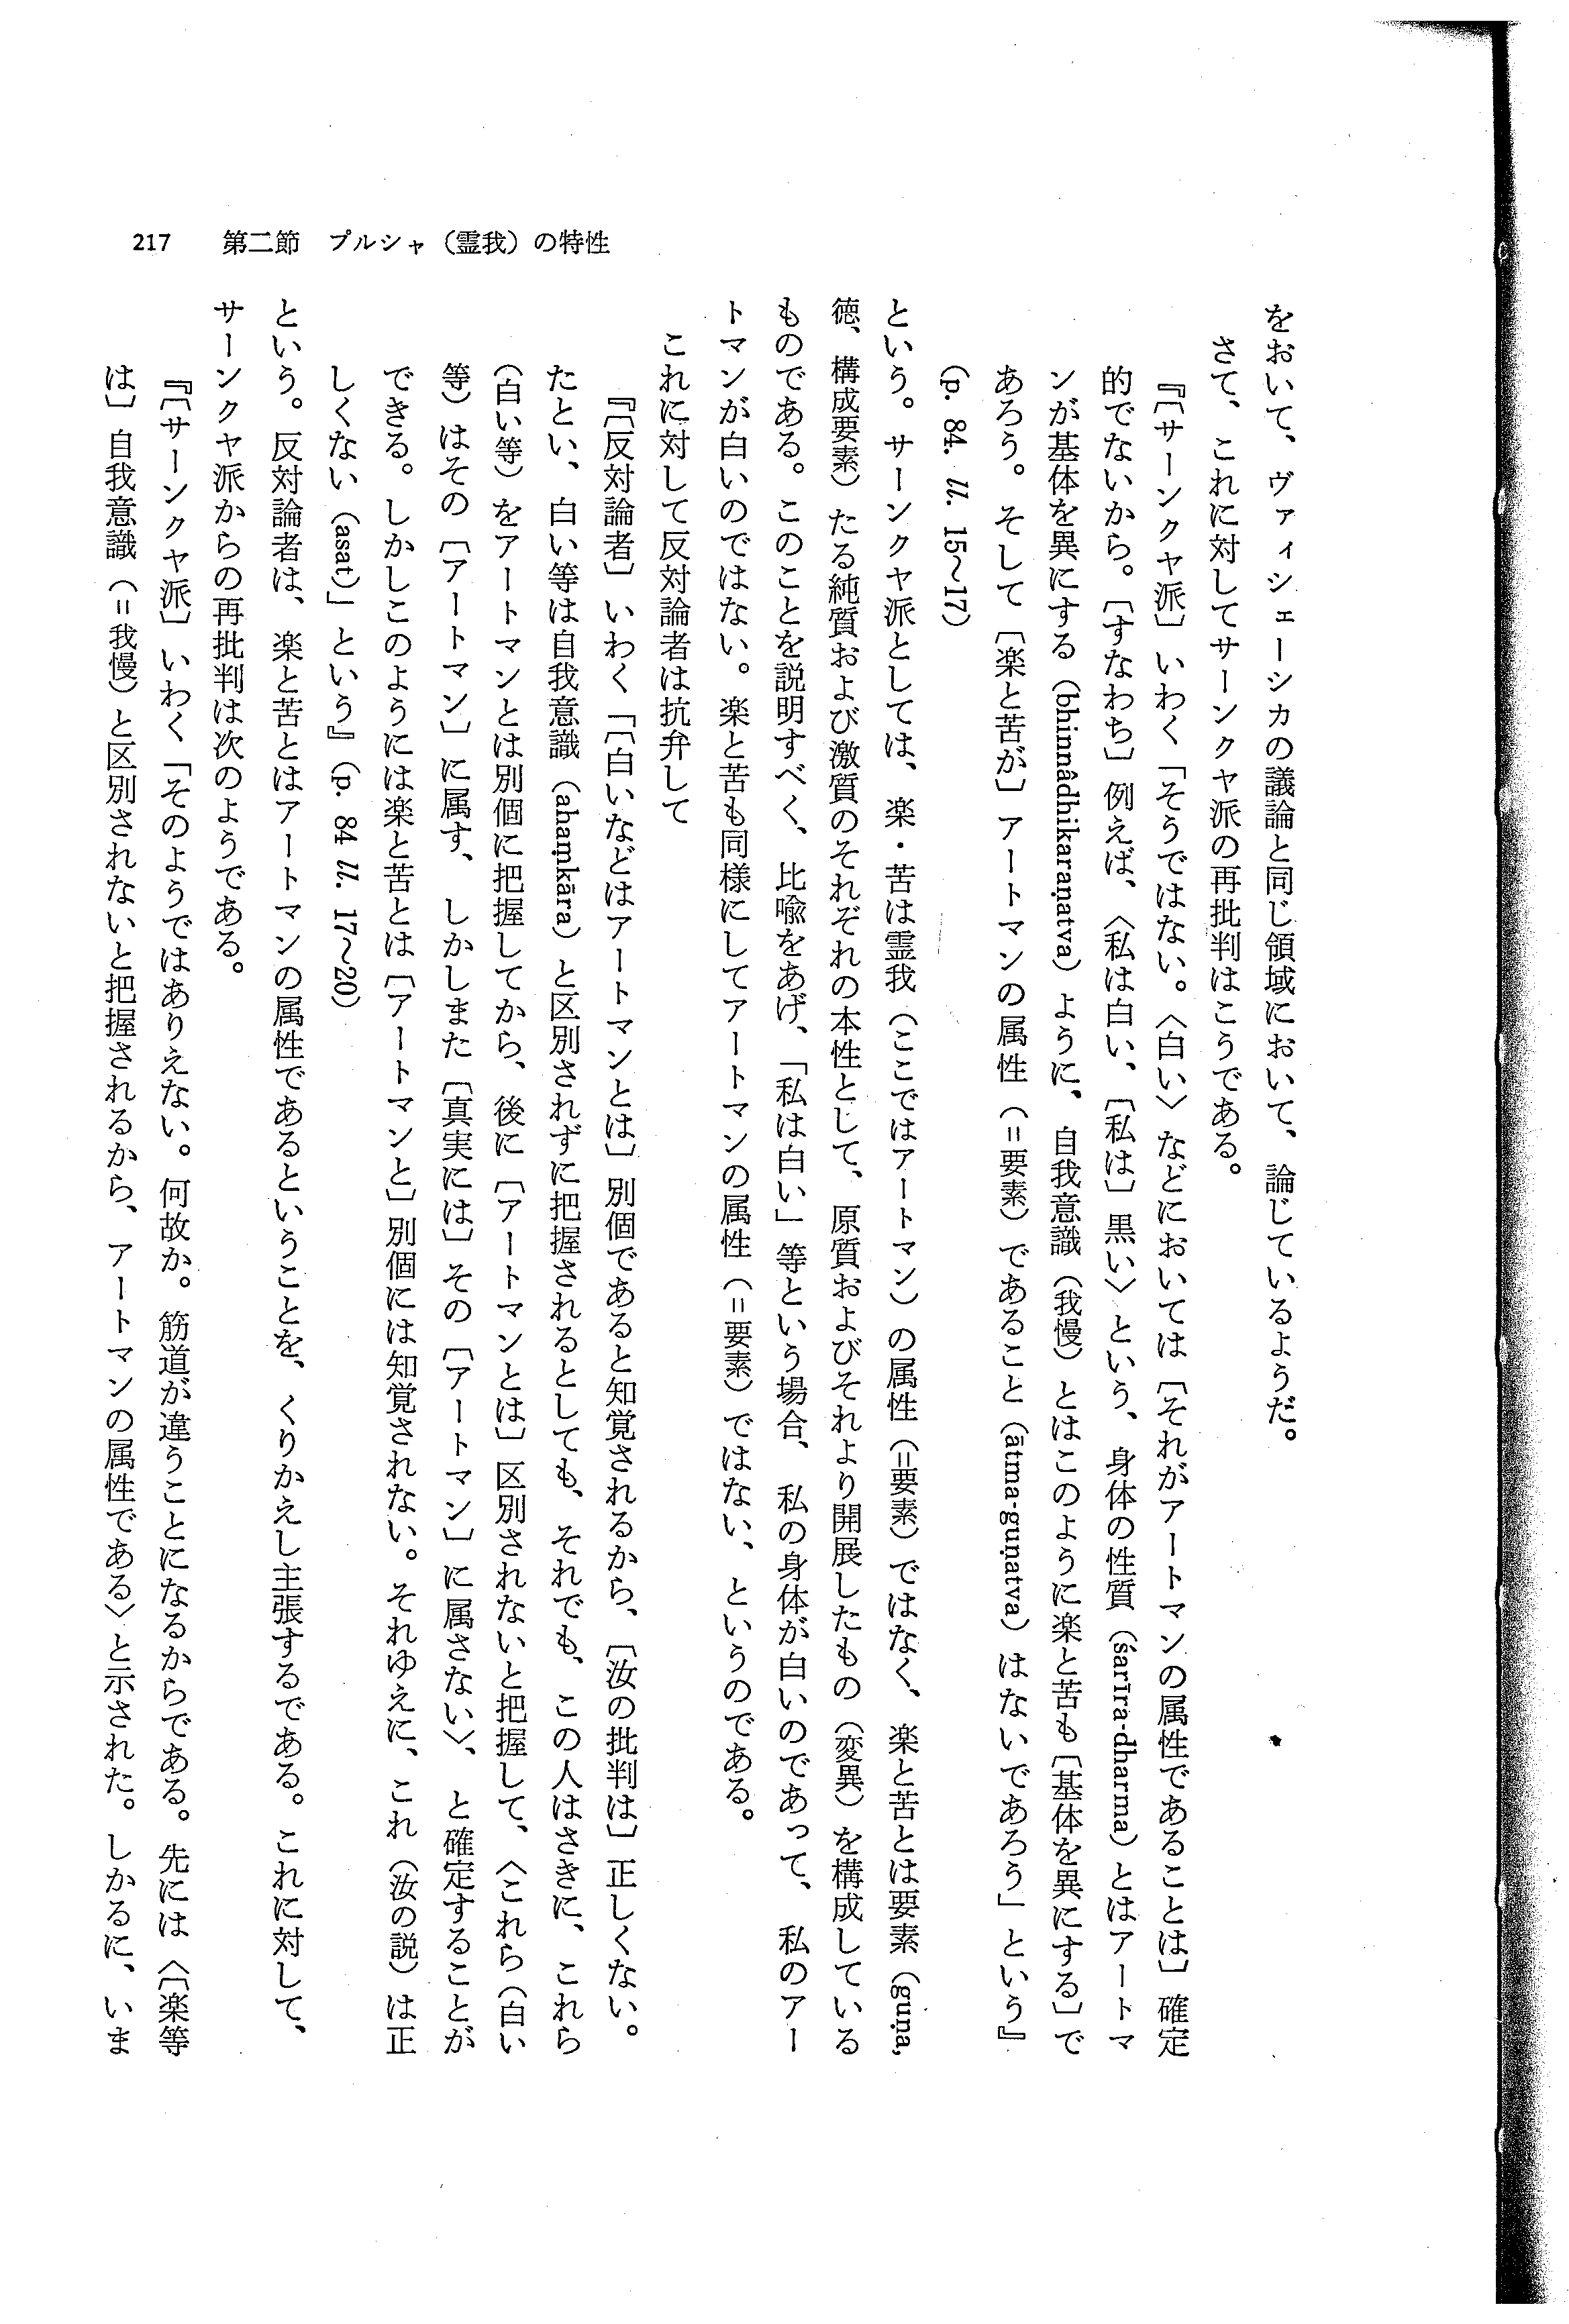 217　第二節　プルシャ（霊我）の特性
をおいて、ヴァイシェーシカの議論と同じ領域において、論じているようだ。
さて、これに対してサーンクヤ派の再批判はこうである。
『〔サーンクヤ派〕いわく「そうではない。〈白い〉などにおいては〔それがアートマンの属性であることは〕確定
的でないから。〔すなわち〕例えば、〈私は白い、〔私は〕黒い〉という、身体の性質（śarīra-dharma）とはアートマ
ンが基体を異にする（bhinnâdhikaraṇatva）ように、自我意識（我慢）とはこのように楽と苦も〔基体を異にする〕で
あろう。そして〔楽と苦が〕アートマンの属性（＝要素）であること（ātma-guṇatva）はないであろう」という』
（p. 84. ll. 15〜17）
という。サーンクヤ派としては、楽・苦は霊我（ここではアートマン）の属性（＝要素）ではなく、楽と苦とは要素（guṇa,
徳、構成要素）たる純質および激質のそれぞれの本性として、原質およびそれより開展したもの（変異）を構成している
ものである。このことを説明すべく、比喩をあげ、「私は白い」等という場合、私の身体が白いのであって、私のアー
トマンが白いのではない。楽と苦も同様にしてアートマンの属性（＝要素）ではない、というのである。
これに対して反対論者は抗弁して
『〔反対論者〕いわく「〔白いなどはアートマンとは〕別個であると知覚されるから、〔汝の批判は〕正しくない。
たとい、白い等は自我意識（ahaṃkāra）と区別されずに把握されるとしても、それでも、この人はさきに、これら
（白い等）をアートマンとは別個に把握してから、後に〔アートマンとは〕区別されないと把握して、〈これら（白い
等）はその〔アートマン〕に属す、しかしまた〔真実には〕その〔アートマン〕に属さない〉、と確定することが
できる。しかしこのようには楽と苦とは〔アートマンと〕別個には知覚されない。それゆえに、これ（汝の説）は正
しくない（asat）」という』（p. 84 ll. 17〜20）
という。反対論者は、楽と苦とはアートマンの属性であるということを、くりかえし主張するである。これに対して、
サーンクヤ派からの再批判は次のようである。
『〔サーンクヤ派〕いわく「そのようではありえない。何故か。筋道が違うことになるからである。先には〈〔楽等
は〕自我意識（＝我慢）と区別されないと把握されるから、アートマンの属性である〉と示された。しかるに、いま